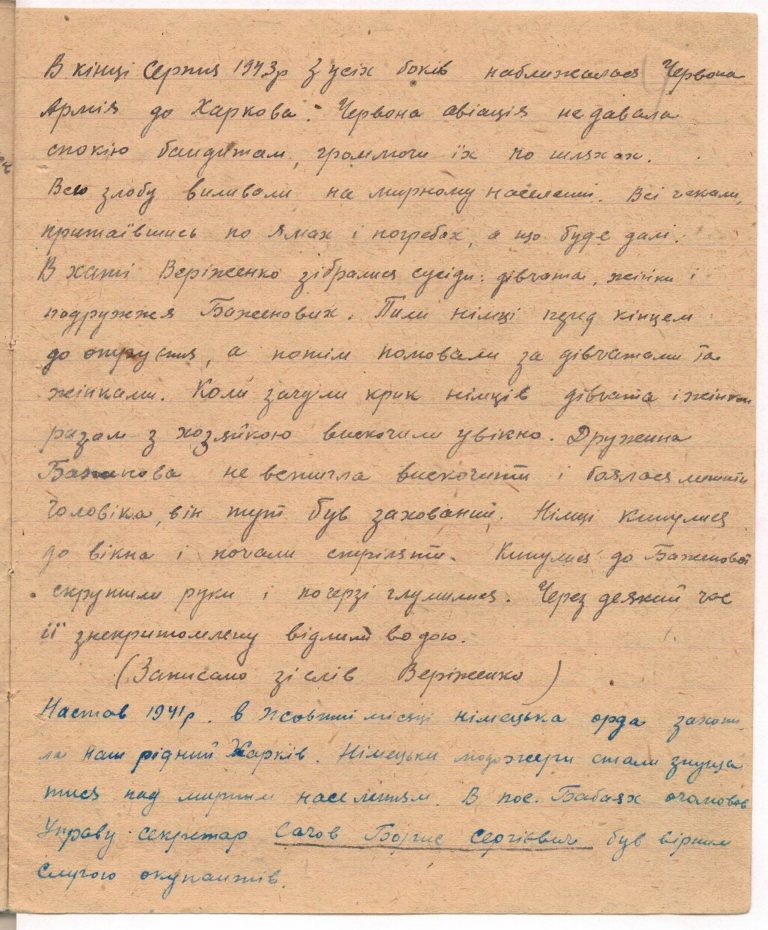 В кінці Серпня 1943р з усіх боків наближалася Червона
Армія до Харкова. Червона авіація не давала
спокію бандитам, громлючи їх по шляхах.
Всю злобу виливали на мирному населенні. Всі чекали,
притаївшись по ямах і погребах, а що буде далі.
В хаті Веріженко зібралися сусіди: дівчата, жінки і
подружжя Баженових. Пили німці перед кінцем
до опруття, а потім полювали за дівчатами та
жінками. Коли зачули крик німців дівчата і жінки
разом з хозяйкою вискочили у вікно. Дружина
Баженова не встигла вискочити і боялася лишити
чоловіка, він тут був захований. Німці кинулися
до вікна і почали стріляти. Кинулися до Баженової
скрутили руки і по черзі глумилися. Через деякий час
її знепритомлену відлили водою.
(Записано зі слів Веріженко)
Настав 1941р. в жовтні місяці німецька орда захопи-
ла наш рідний Харків. Німецьки людожери стали знуща
тися над мирним населенням. В пос. Бабаях очоловив
Управу секретар Сачов Борис Сергієвич був вірним
слугою окупантів.